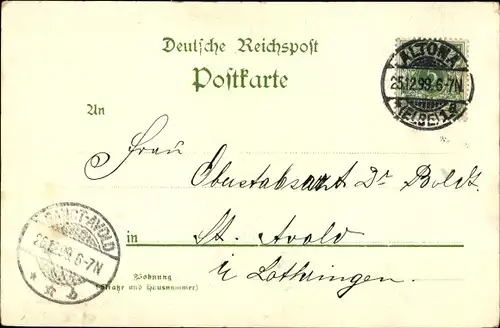 Deutsche Reichspost
Postkarte
ALTONA
25.12.99.6-7N
*(ELBE)1a
An
Frau
Oberstabsarzt Dr Boldt
in
St. Avold
i/ Lothringen.
SANCT-AVOLD
26.12.99.6-7N
* * b
Wohnung
(Straße und Hausnummer)